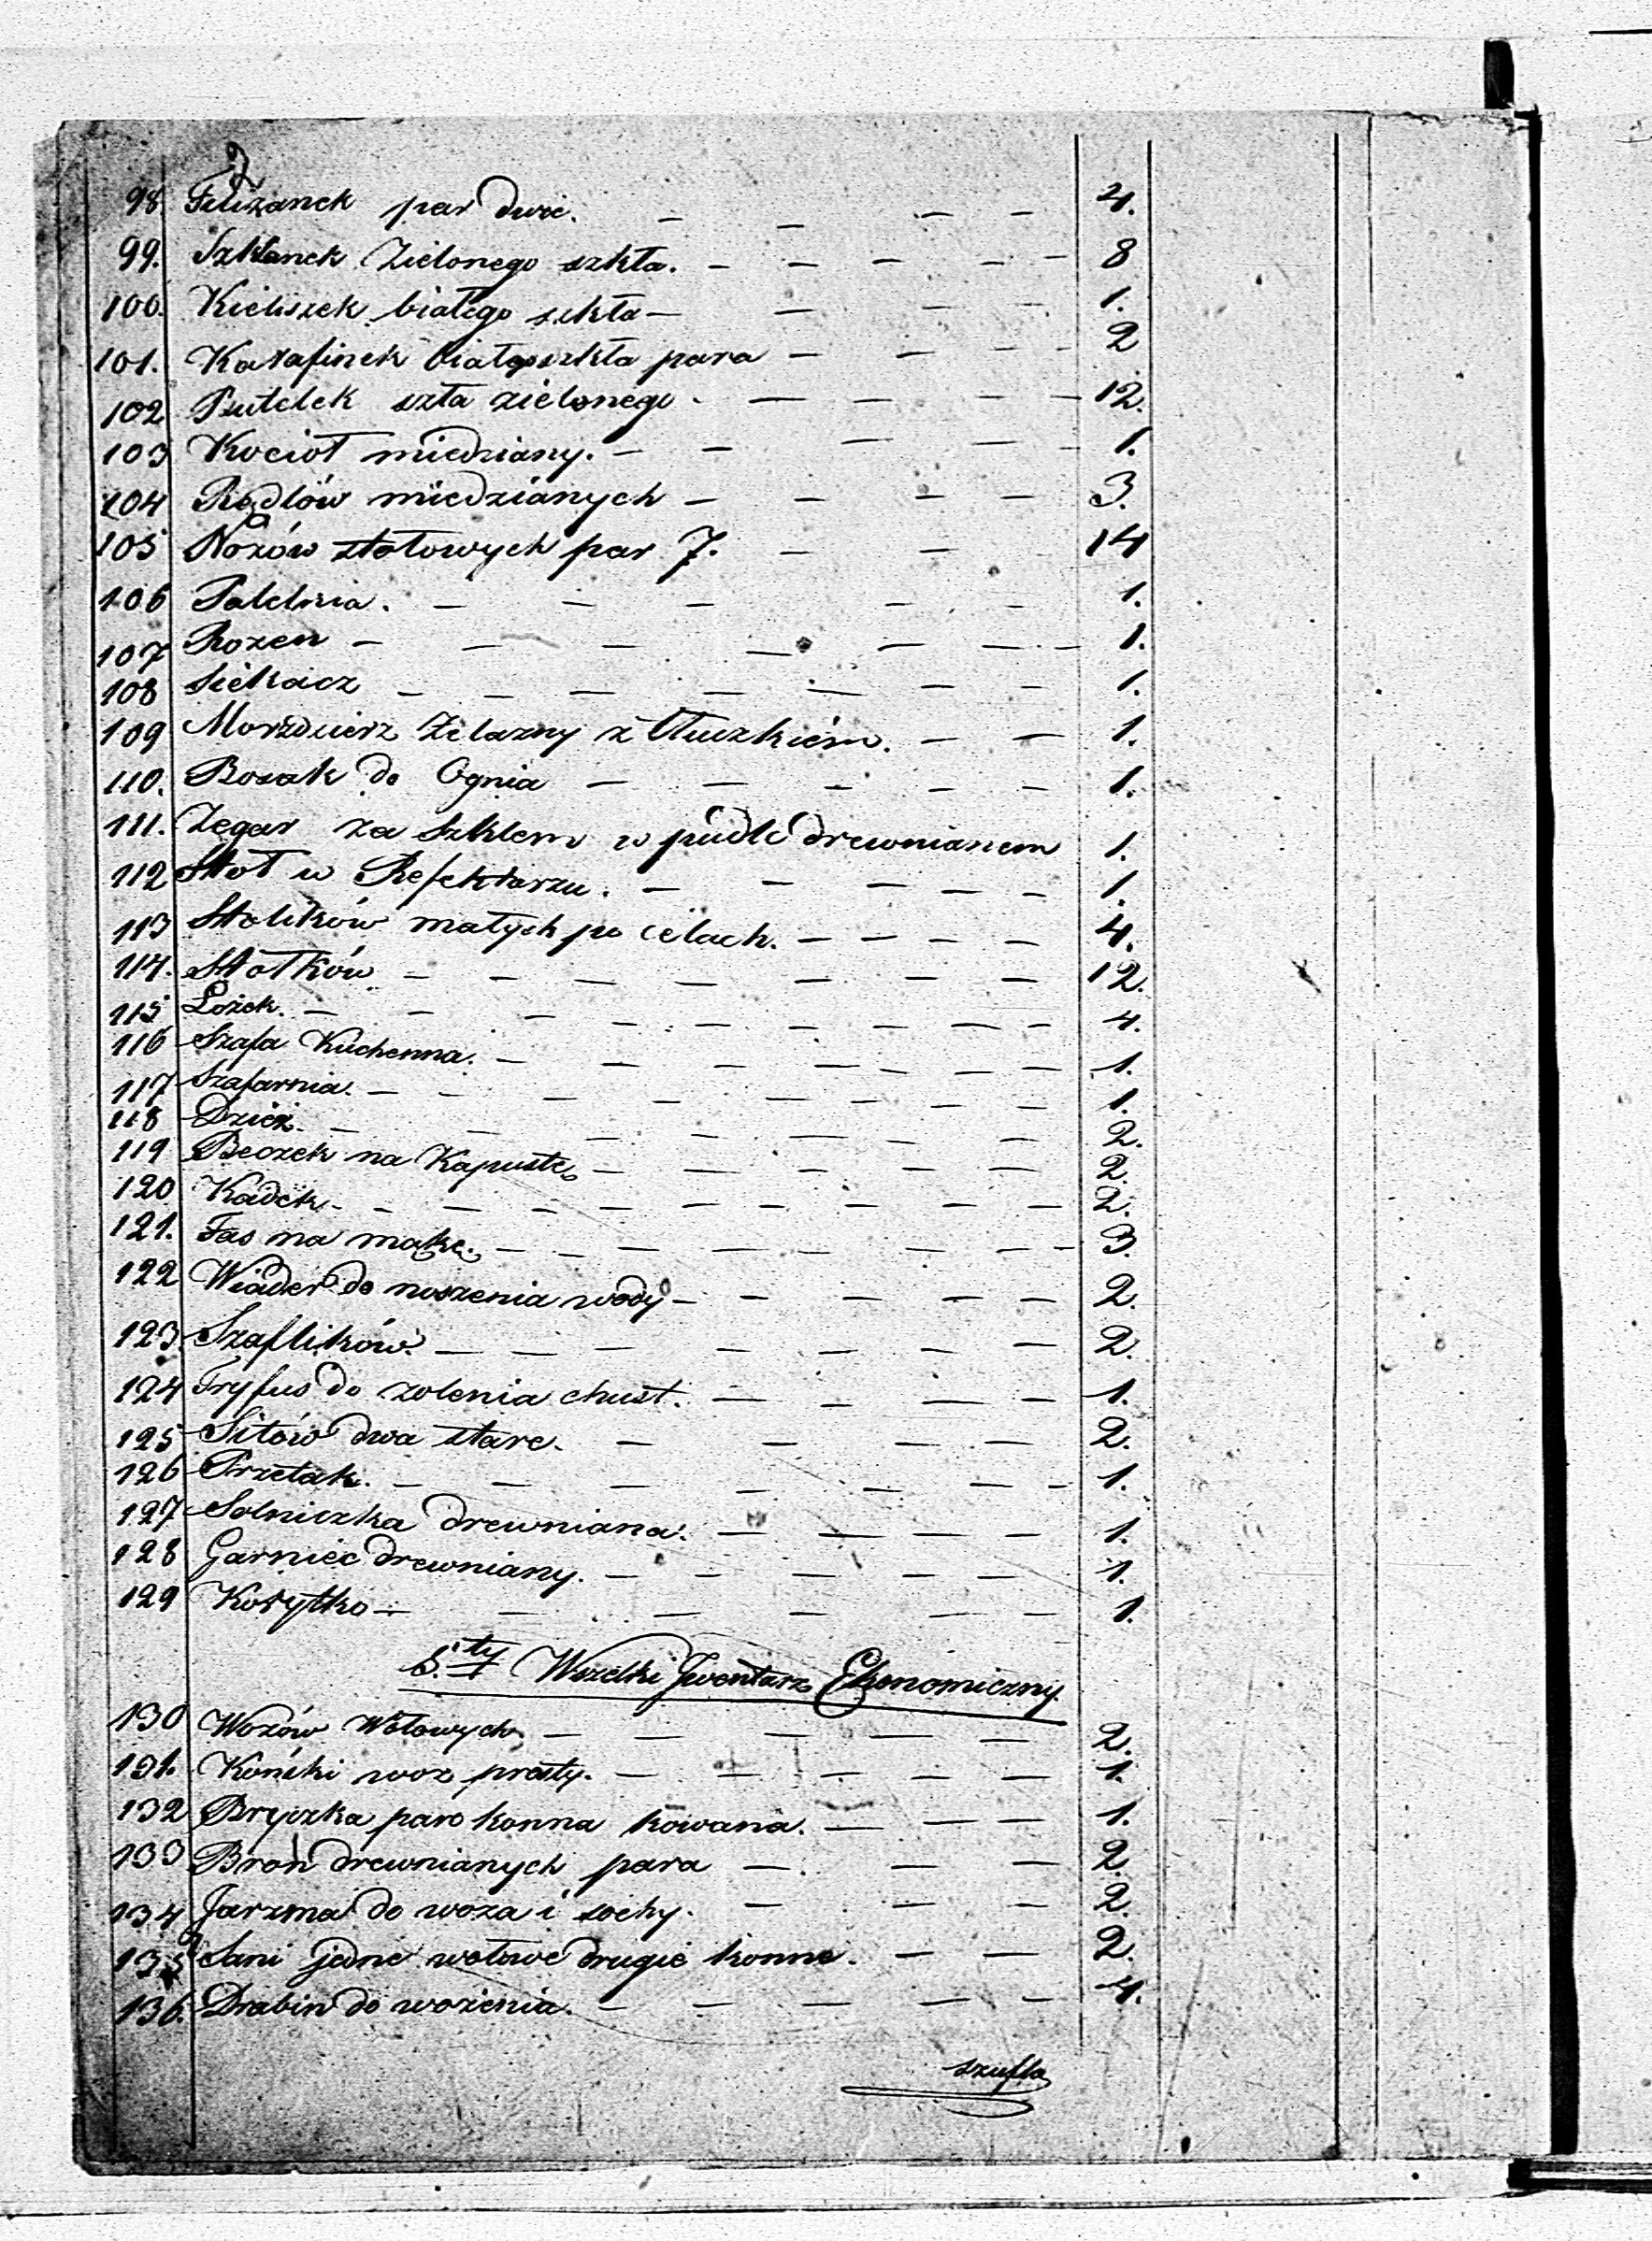 98 Filiżanek par dwie. — — — — 4.
99. Szklanek Zielonego szkła. — — — — — 8
100. Kieliszek białego szkła — — — — 1.
101. Karafinek białego szkła para — — — — 2
102 Butelek szła zielonego. — — — — 12.
103 Kocioł miedziany. — — — — — 1.
104 Rądlów miedzianych — — — — 3.
105 Nożów stołowych par 7. — — 14
106 Patelnia. — — — — — 1.
107 Rożen — — — — — — — 1.
108 Siekacz — — — — — — — 1.
109 Morździerz Żelazny z tłuczkiém. — — 1.
110. Bosak do Ognia — — — — — 1.
111. Zegar za szklem w pudle drewnianem 1.
112 Stół w Refektarzu. — — — — — 1.
113 Stolików małych po celach. — — — — 4.
114. Stołków — — — — — — — 12.
115 Łożek. — — — — — — — — 4.
116 Szafa Kuchenna. — — — — — — 1.
117 Szafarnia. — — — — — — — 1.
118 Dzież. — — — — — — — 2.
119 Beczek na Kapustę — — — — — 2.
120 Kadek — — — — — — — — 2.
121. Fas na mąkę. — — — — — — — 3.
122 Wiader do noszenia wody — — — — — 2.
123. Szaflików. — — — — — — 2.
124 Tryfus do zolenia chust. — — — — 1.
125 Sitów dwa stare. — — — — 2.
126 Przetak. — — — — — — 1.
127 Solniczka drewniana. — — — — 1.
128 Garniec drewniany. — — — — — 1.
129 Korytko — — — — — — 1.
5.ty Wszelki Inwentarz Ekonomiczny.
130 Wozów Wołowych — — — — — 2.
131. Końśki woz prosty. — — — — — 1.
132 Bryczka paro konna kowana. — — — 1.
133 Bron drewnianych para — — — 2.
134 Jarzma do woza i sochy. — — — — 2.
135 Sani jedne wołowe drugie konne. — — — 2.
136. Drabin do wożenia. — — — — — 4.
szufla